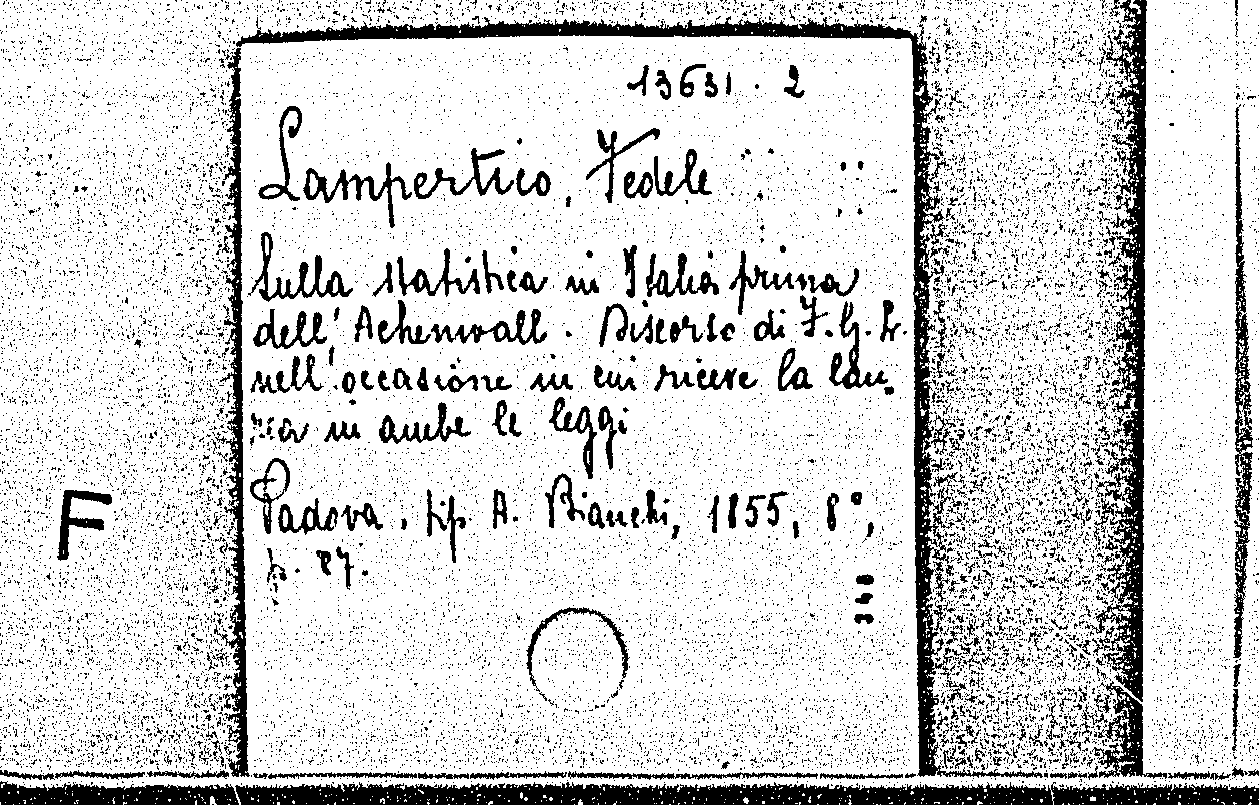 13631 . 2
Lampertico, Fedele
Sulla statistica in Italia prima
dell' Achenwall. Discorso di F. G. L.
nell' occasione in cui riceve la lau-
rea in ambe le leggi
Padova. tip A. Bianchi, 1855, 8°,
p. 87.
F